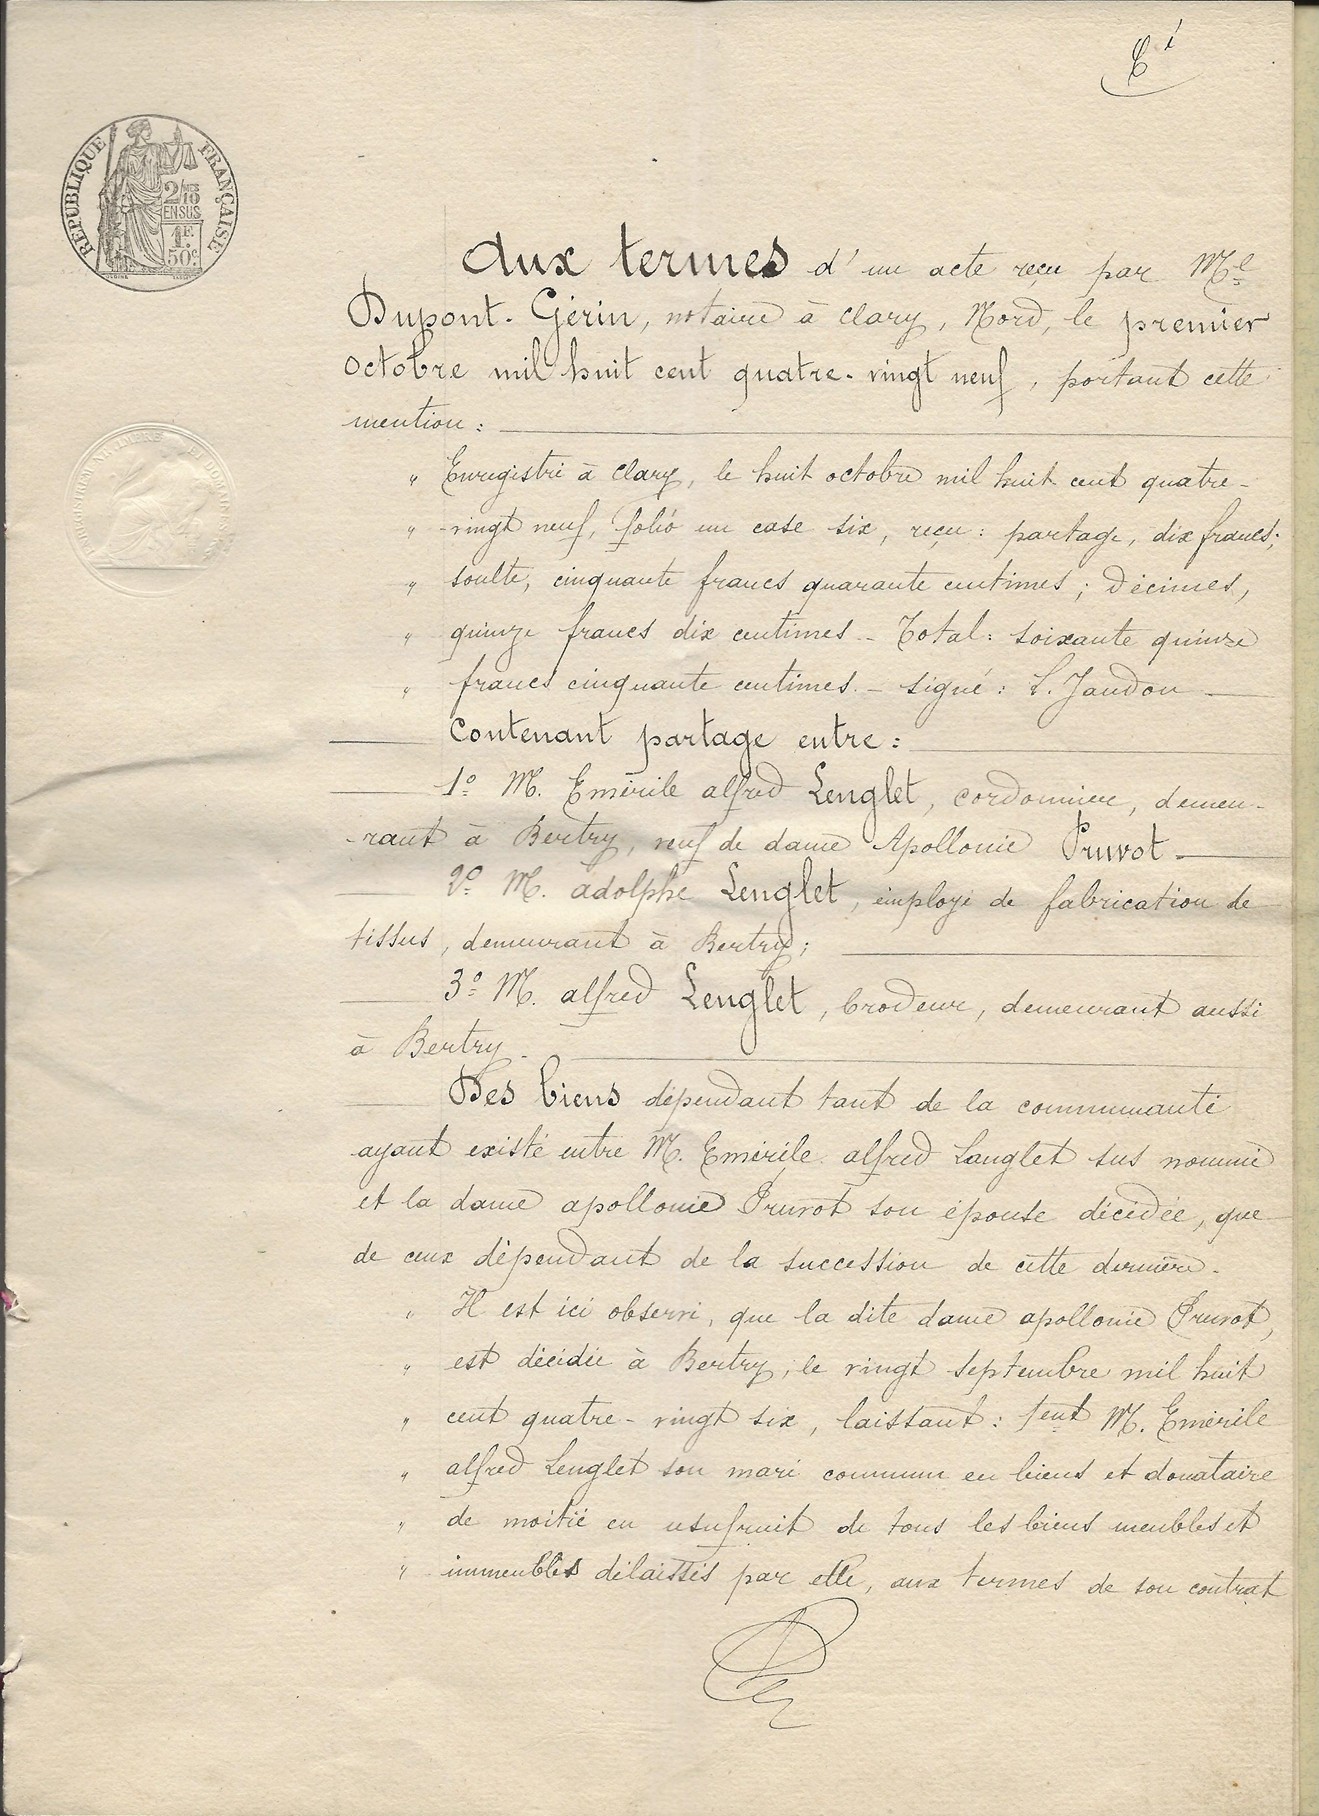 RÉPUBLIQUE FRANÇAISE
2/10 MES
EN SUS
1F.
50c.
Aux termes d'un acte reçu par Me
Dupont-Gérin, notaire à Clary, Nord, le premier
octobre mil huit cent quatre-vingt neuf, portant cette
mention :
" Enregistré à Clary, le huit octobre mil huit cent quatre-
" -vingt neuf, folio un case six, reçu : partage, dix francs;
" soulte, cinquante francs quarante centimes ; Décimes,
" quinze francs dix centimes - Total : soixante quinze
" francs cinquante centimes. - signé : L. Jaudon
Contenant partage entre :
1º M. Emérile alfred Lenglet, cordonnier, demeu-
-rant à Bertry, veuf de dame Apollonie Pruvot -
2º M. adolphe Lenglet, employé de fabrication de
tissus, demeurant à Bertry;
3º M. alfred Lenglet, brodeur, demeurant aussi
à Bertry -
Des biens dépendant tant de la communauté
ayant existé entre M. Emérile alfred Lenglet sus nommé
et la dame apollonie Pruvot son épouse décédée, que
de ceux dépendant de la succession de cette dernière.
" Il est ici observé, que la dite dame apollonie Pruvot,
" est décédée à Bertry, le vingt septembre mil huit
" cent quatre-vingt six, laissant : 1ent M. Emérile
" alfred Lenglet son mari commun en biens et donataire
" de moitié en usufruit de tous les biens meubles et
" immeubles délaissés par elle, aux termes de son contrat